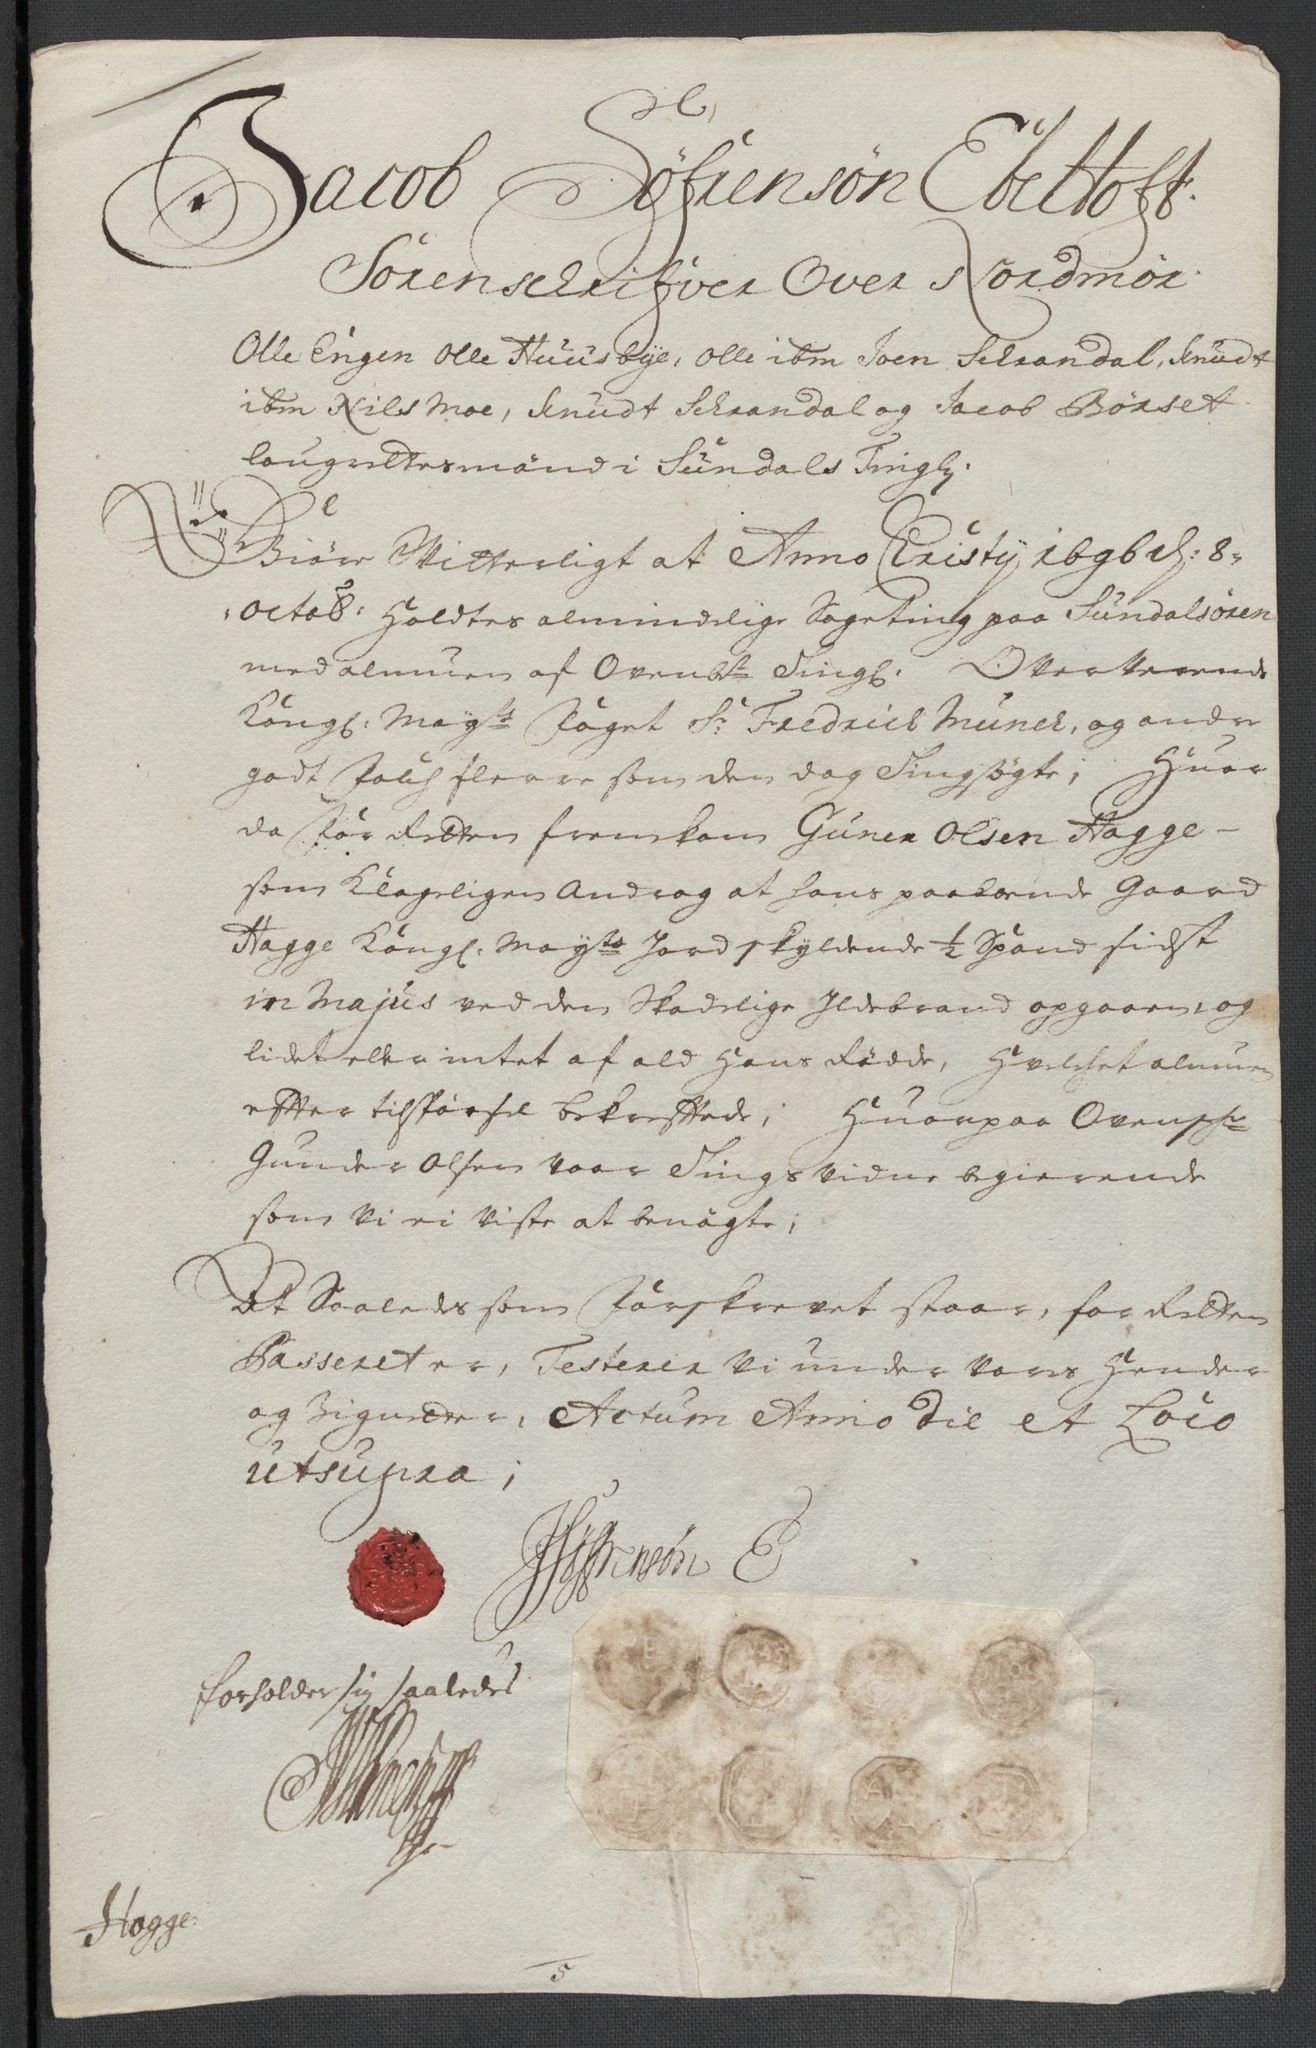 Jacob Søfrensøn Ebeltoft.
Sorenschrifver Over Nordmør.
Olle Engen Olle Huusbye, Olle ibm Joen Schrandal, Knudt
ibm Nils Moe, Knudt Schrandal og Jacob Børset
laugrettesmænd i Sundals Tingl:
Giøre Vitterligt at Anno Christy 1696 d: 8
octob: Holdtes almindelige Sageting paa Sundalsøren
med almuen af Ovenbte Tingl: Oververende
Kongl: Mayts Foget Sr Fredrich Munch, og andre
godt Folch flerre som den dag Tingsøgte; Huor
da for Retten fremkom Guner Olsen Hagge -
som Klageligen Androg at hans paaboende Gaard
Hagge Kongl: Mayts Jord skyldende ½ Spand sidst
in Majus ved den Skadelige Ildebrand opgaaen, og
lidet eller intet af ald Hans Rødde, Hvelchet almuen
effter tilspørsel bekreftede; Huorpaa Ovenschr
Gunder Olsen vaar Tings vidne begierende
som vi ei viste at benegte;
At Saaledes som forskrevet staar, for Retten
Passeret er, Testerer vi under vores Hender
og Zigneter, Actum Anno die et Loco
utsupra;
JSøfrensøn E
forholder sig saaledes
Hogge
5